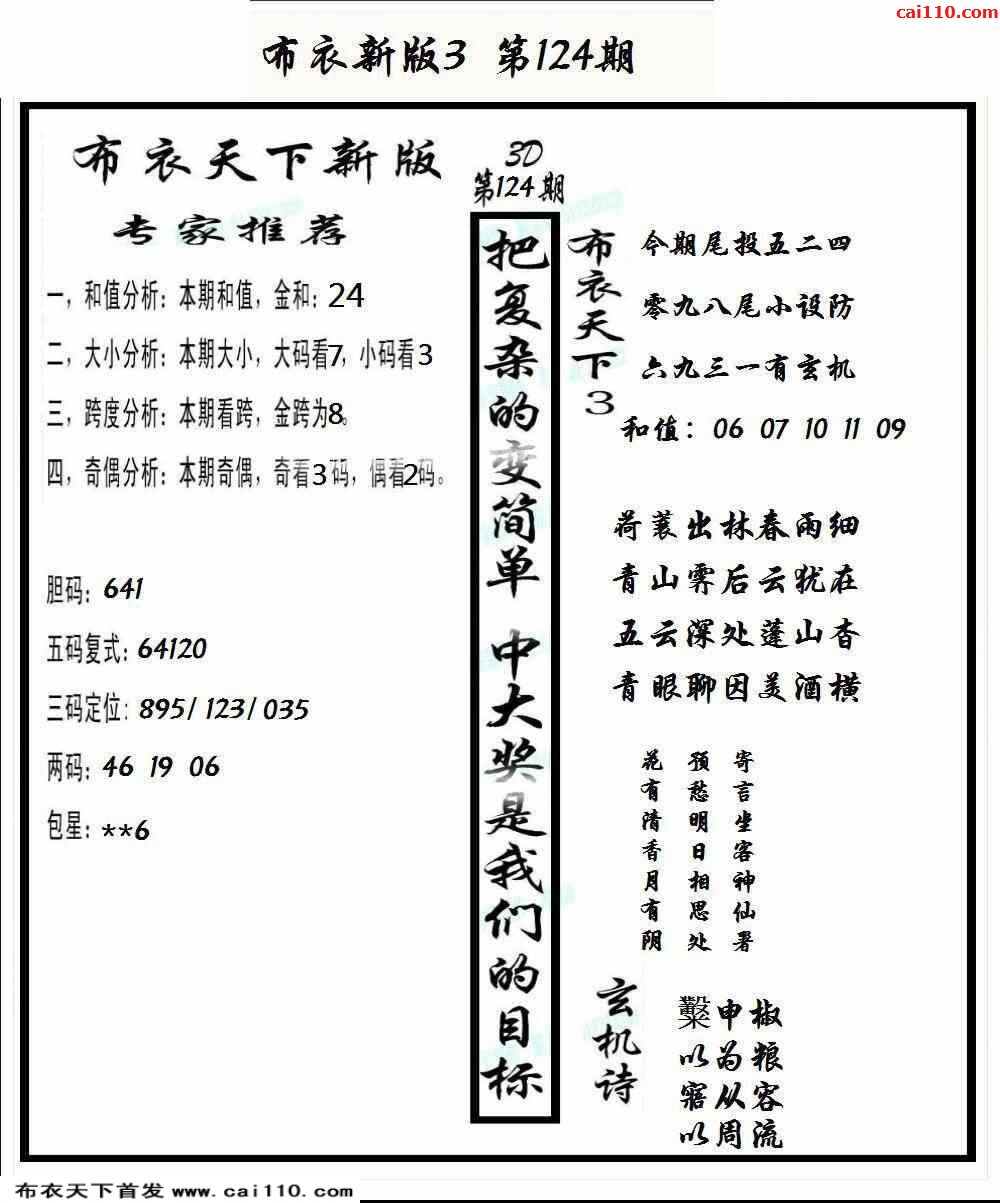 cai110.com
布衣新版3 第124期
布衣天下新版
专家推荐
一，和值分析：本期和值，金和：24
二，大小分析：本期大小，大码看7，小码看3
三，跨度分析：本期看跨，金跨为8。
四，奇偶分析：本期奇偶，奇看3码，偶看2码。
胆码：641
五码复式：64120
三码定位：895/123/035
两码：46 19 06
包星：**6
3D
第124期
把复杂的变简单 中大奖是我们的目标
布衣天下3
今期尾投五二四
零九八尾小设防
六九三一有玄机
和值：06 07 10 11 09
荷蓑出林春雨细
青山霁后云犹在
五云深处蓬山杳
青眼聊因美酒横
寄言坐客神仙署
预愁明日相思处
花有清香月有阴
玄机诗
糳申椒
以为粮
寤从容
以周流
布衣天下首发 www.cai110.com